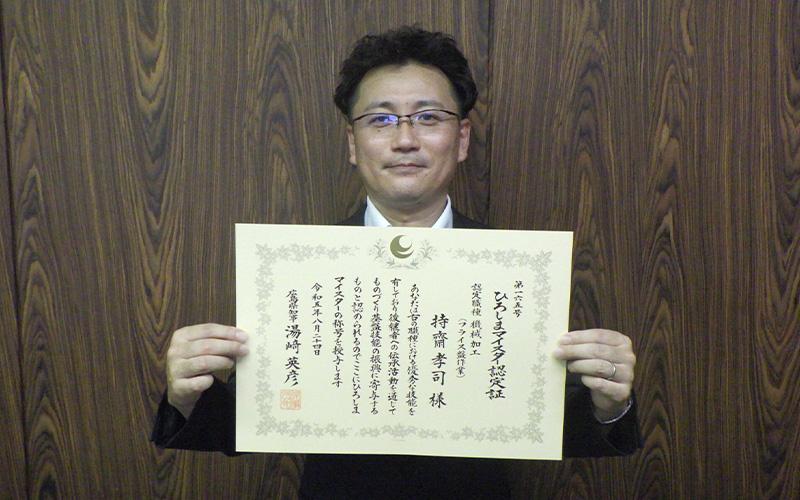 第一六五号
ひろしまマイスター認定証
認定職種 機械加工
(フライス盤作業)
持齋 孝司 様
あなたは右の職種における優秀な技能を
有しており後継者への伝承活動を通じて
ものづくり基盤技能の振興に寄与する
ものと認められるのでここにひろしま
マイスターの称号を授与します
令和五年八月二十四日
広島県知事 湯﨑 英彦